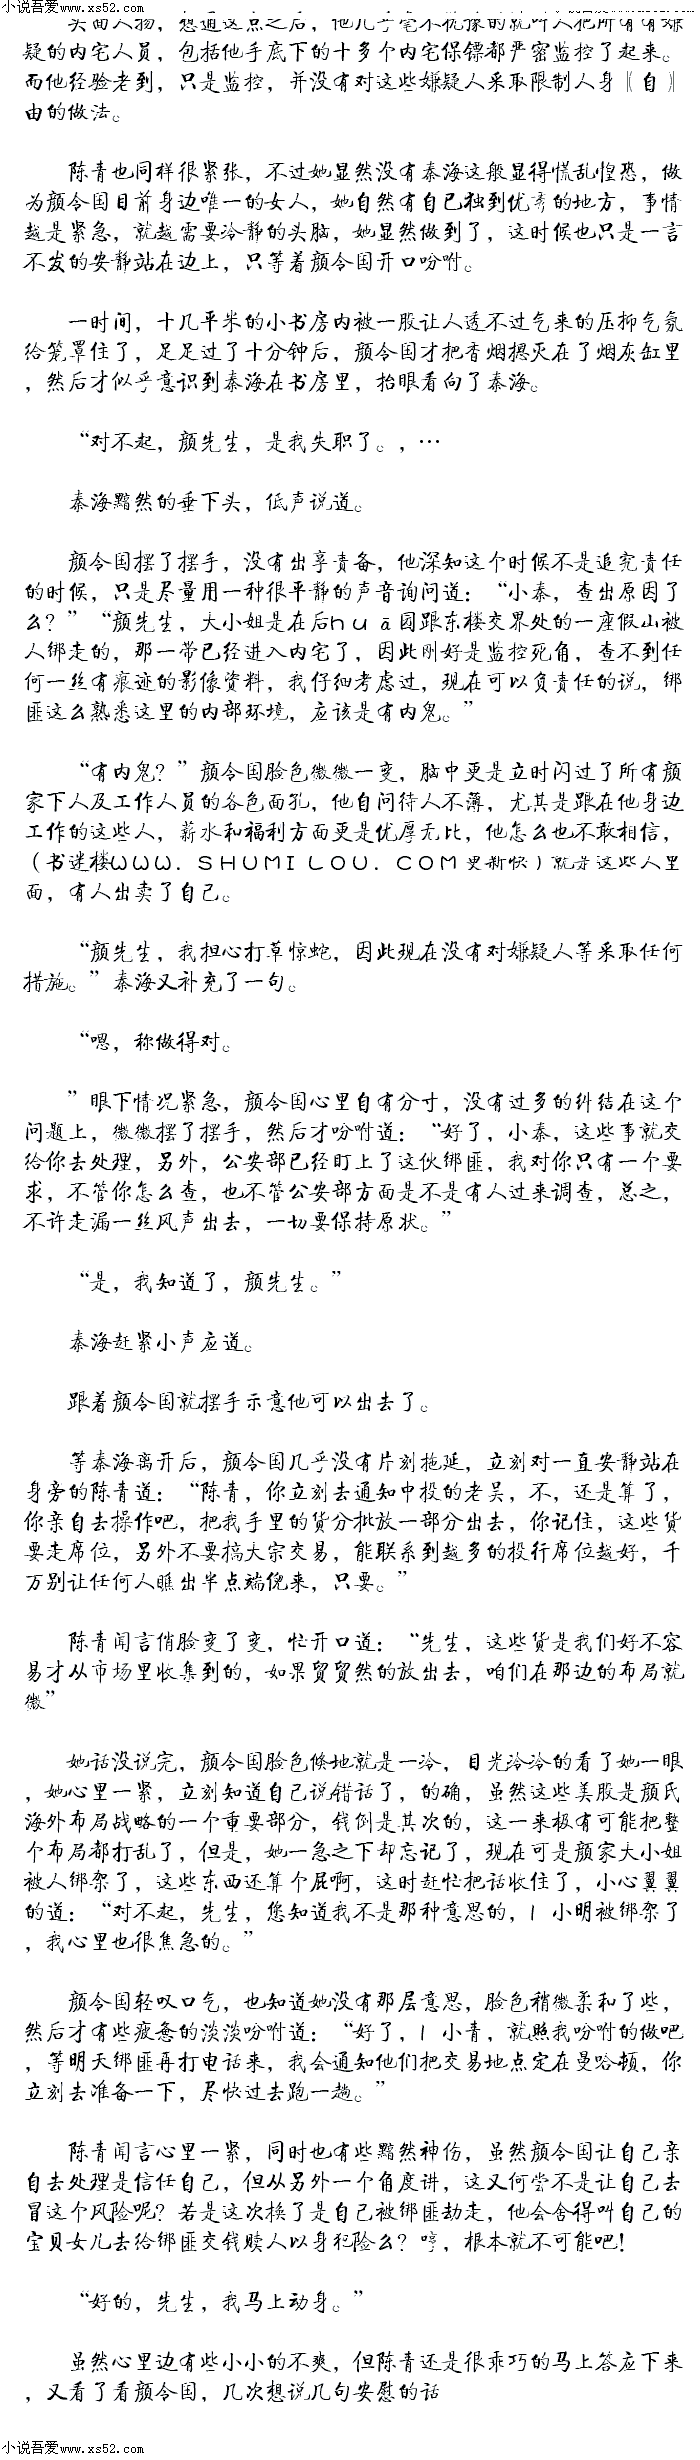 小说吾爱www.xs52.com
头面人物，想通这点之后，他几乎毫不犹豫的就叫人把所有有嫌
疑的内宅人员，包括他手底下的十多个内宅保镖都严密监控了起来。
而他经验老到，只是监控，并没有对这些嫌疑人采取限制人身『自』
由的做法。
陈青也同样很紧张，不过她显然没有秦海这般显得慌乱惶恐，做
为颜令国目前身边唯一的女人，她自然有自己独到优秀的地方，事情
越是紧急，就越需要冷静的头脑，她显然做到了，这时候也只是一言
不发的安静站在边上，只等着颜令国开口吩咐。
一时间，十几平米的小书房内被一股让人透不过气来的压抑气氛
给笼罩住了，足足过了十分钟后，颜令国才把香烟摁灭在了烟灰缸里
，然后才似乎意识到秦海在书房里，抬眼看向了秦海。
“对不起，颜先生，是我失职了。，…
秦海黯然的垂下头，低声说道。
颜令国摆了摆手，没有出享责备，他深知这个时候不是追究责任
的时候，只是尽量用一种很平静的声音询问道：“小秦，查出原因了
么？”“颜先生，大小姐是在后huā园跟东楼交界处的一座假山被
人绑走的，那一带已经进入内宅了，因此刚好是监控死角，查不到任
何一丝有痕迹的影像资料，我仔细考虑过，现在可以负责任的说，绑
匪这么熟悉这里的内部环境，应该是有内鬼。”
“有内鬼？”颜令国脸色微微一变，脑中更是立时闪过了所有颜
家下人及工作人员的各色面孔，他自问待人不薄，尤其是跟在他身边
工作的这些人，薪水和福利方面更是优厚无比，他怎么也不敢相信，
（书迷楼WWW.SHUMILOU.COM更新快）就是这些人里
面，有人出卖了自己。
“颜先生，我担心打草惊蛇，因此现在没有对嫌疑人等采取任何
措施。”秦海又补充了一句。
“嗯，称做得对。
”眼下情况紧急，颜令国心里自有分寸，没有过多的纠结在这个
问题上，微微摆了摆手，然后才吩咐道：“好了，小秦，这些事就交
给你去处理，另外，公安部已经盯上了这伙绑匪，我对你只有一个要
求，不管你怎么查，也不管公安部方面是不是有人过来调查，总之，
不许走漏一丝风声出去，一切要保持原状。”
“是，我知道了，颜先生。”
秦海赶紧小声应道。
跟着颜令国就摆手示意他可以出去了。
等秦海离开后，颜令国几乎没有片刻拖延，立刻对一直安静站在
身旁的陈青道：“陈青，你立刻去通知中投的老吴，不，还是算了，
你亲自去操作吧，把我手里的货分批放一部分出去，你记住，这些货
要走席位，另外不要搞大宗交易，能联系到越多的投行席位越好，千
万别让任何人瞧出半点端倪来，只要。”
陈青闻言俏脸变了变，忙开口道：“先生，这些货是我们好不容
易才从市场里收集到的，如果贸贸然的放出去，咱们在那边的布局就
微”
她话没说完，颜令国脸色倏地就是一冷，目光冷冷的看了她一眼
，她心里一紧，立刻知道自己说错话了，的确，虽然这些美股是颜氏
海外布局战略的一个重要部分，钱倒是其次的，这一来极有可能把整
个布局都打乱了，但是，她一急之下却忘记了，现在可是颜家大小姐
被人绑架了，这些东西还算个屁啊，这时赶忙把话收住了，小心翼翼
的道：“对不起，先生，您知道我不是那种意思的，l 小明被绑架了
，我心里也很焦急的。”
颜令国轻叹口气，也知道她没有那层意思，脸色稍微柔和了些，
然后才有些疲惫的淡淡吩咐道：“好了，l 小青，就照我吩咐的做吧
，等明天绑匪再打电话来，我会通知他们把交易地点定在曼哈顿，你
立刻去准备一下，尽快过去跑一趟。”
陈青闻言心里一紧，同时也有些黯然神伤，虽然颜令国让自己亲
自去处理是信任自己，但从另外一个角度讲，这又何尝不是让自己去
冒这个风险呢？若是这次换了是自己被绑匪劫走，他会舍得叫自己的
宝贝女儿去给绑匪交钱赎人以身犯险么？哼，根本就不可能吧！
“好的，先生，我马上动身。”
虽然心里边有些小小的不爽，但陈青还是很乖巧的马上答应下来
，又看了看颜令国，几次想说几句安慰的话
小说吾爱www.xs52.com